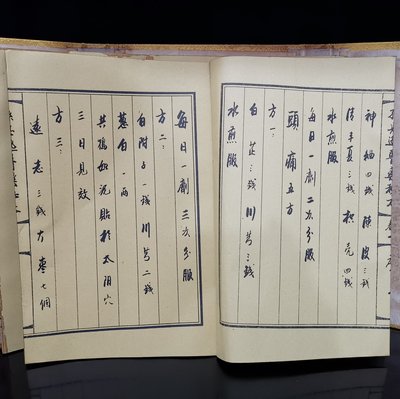 神曲四錢 陳皮三錢
清半夏三錢 枳壳四錢
水煎服
每日一劑 二次分服
頭痛五方
方一：
白芷三錢 川芎三錢
水煎服
每日一劑 三次分服
方二：
白附子一錢 川芎二錢
葱白一两
共搗如泥貼於太阳穴
三日見效
方三：
遠志三錢 大枣七個